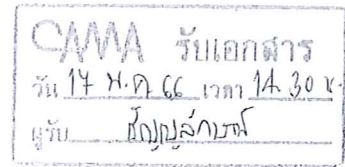 CAMA รับเอกสาร
วัน 17 พ.ค 66 เวลา 14.30 น.
ผู้รับ ธัญญลักษณ์